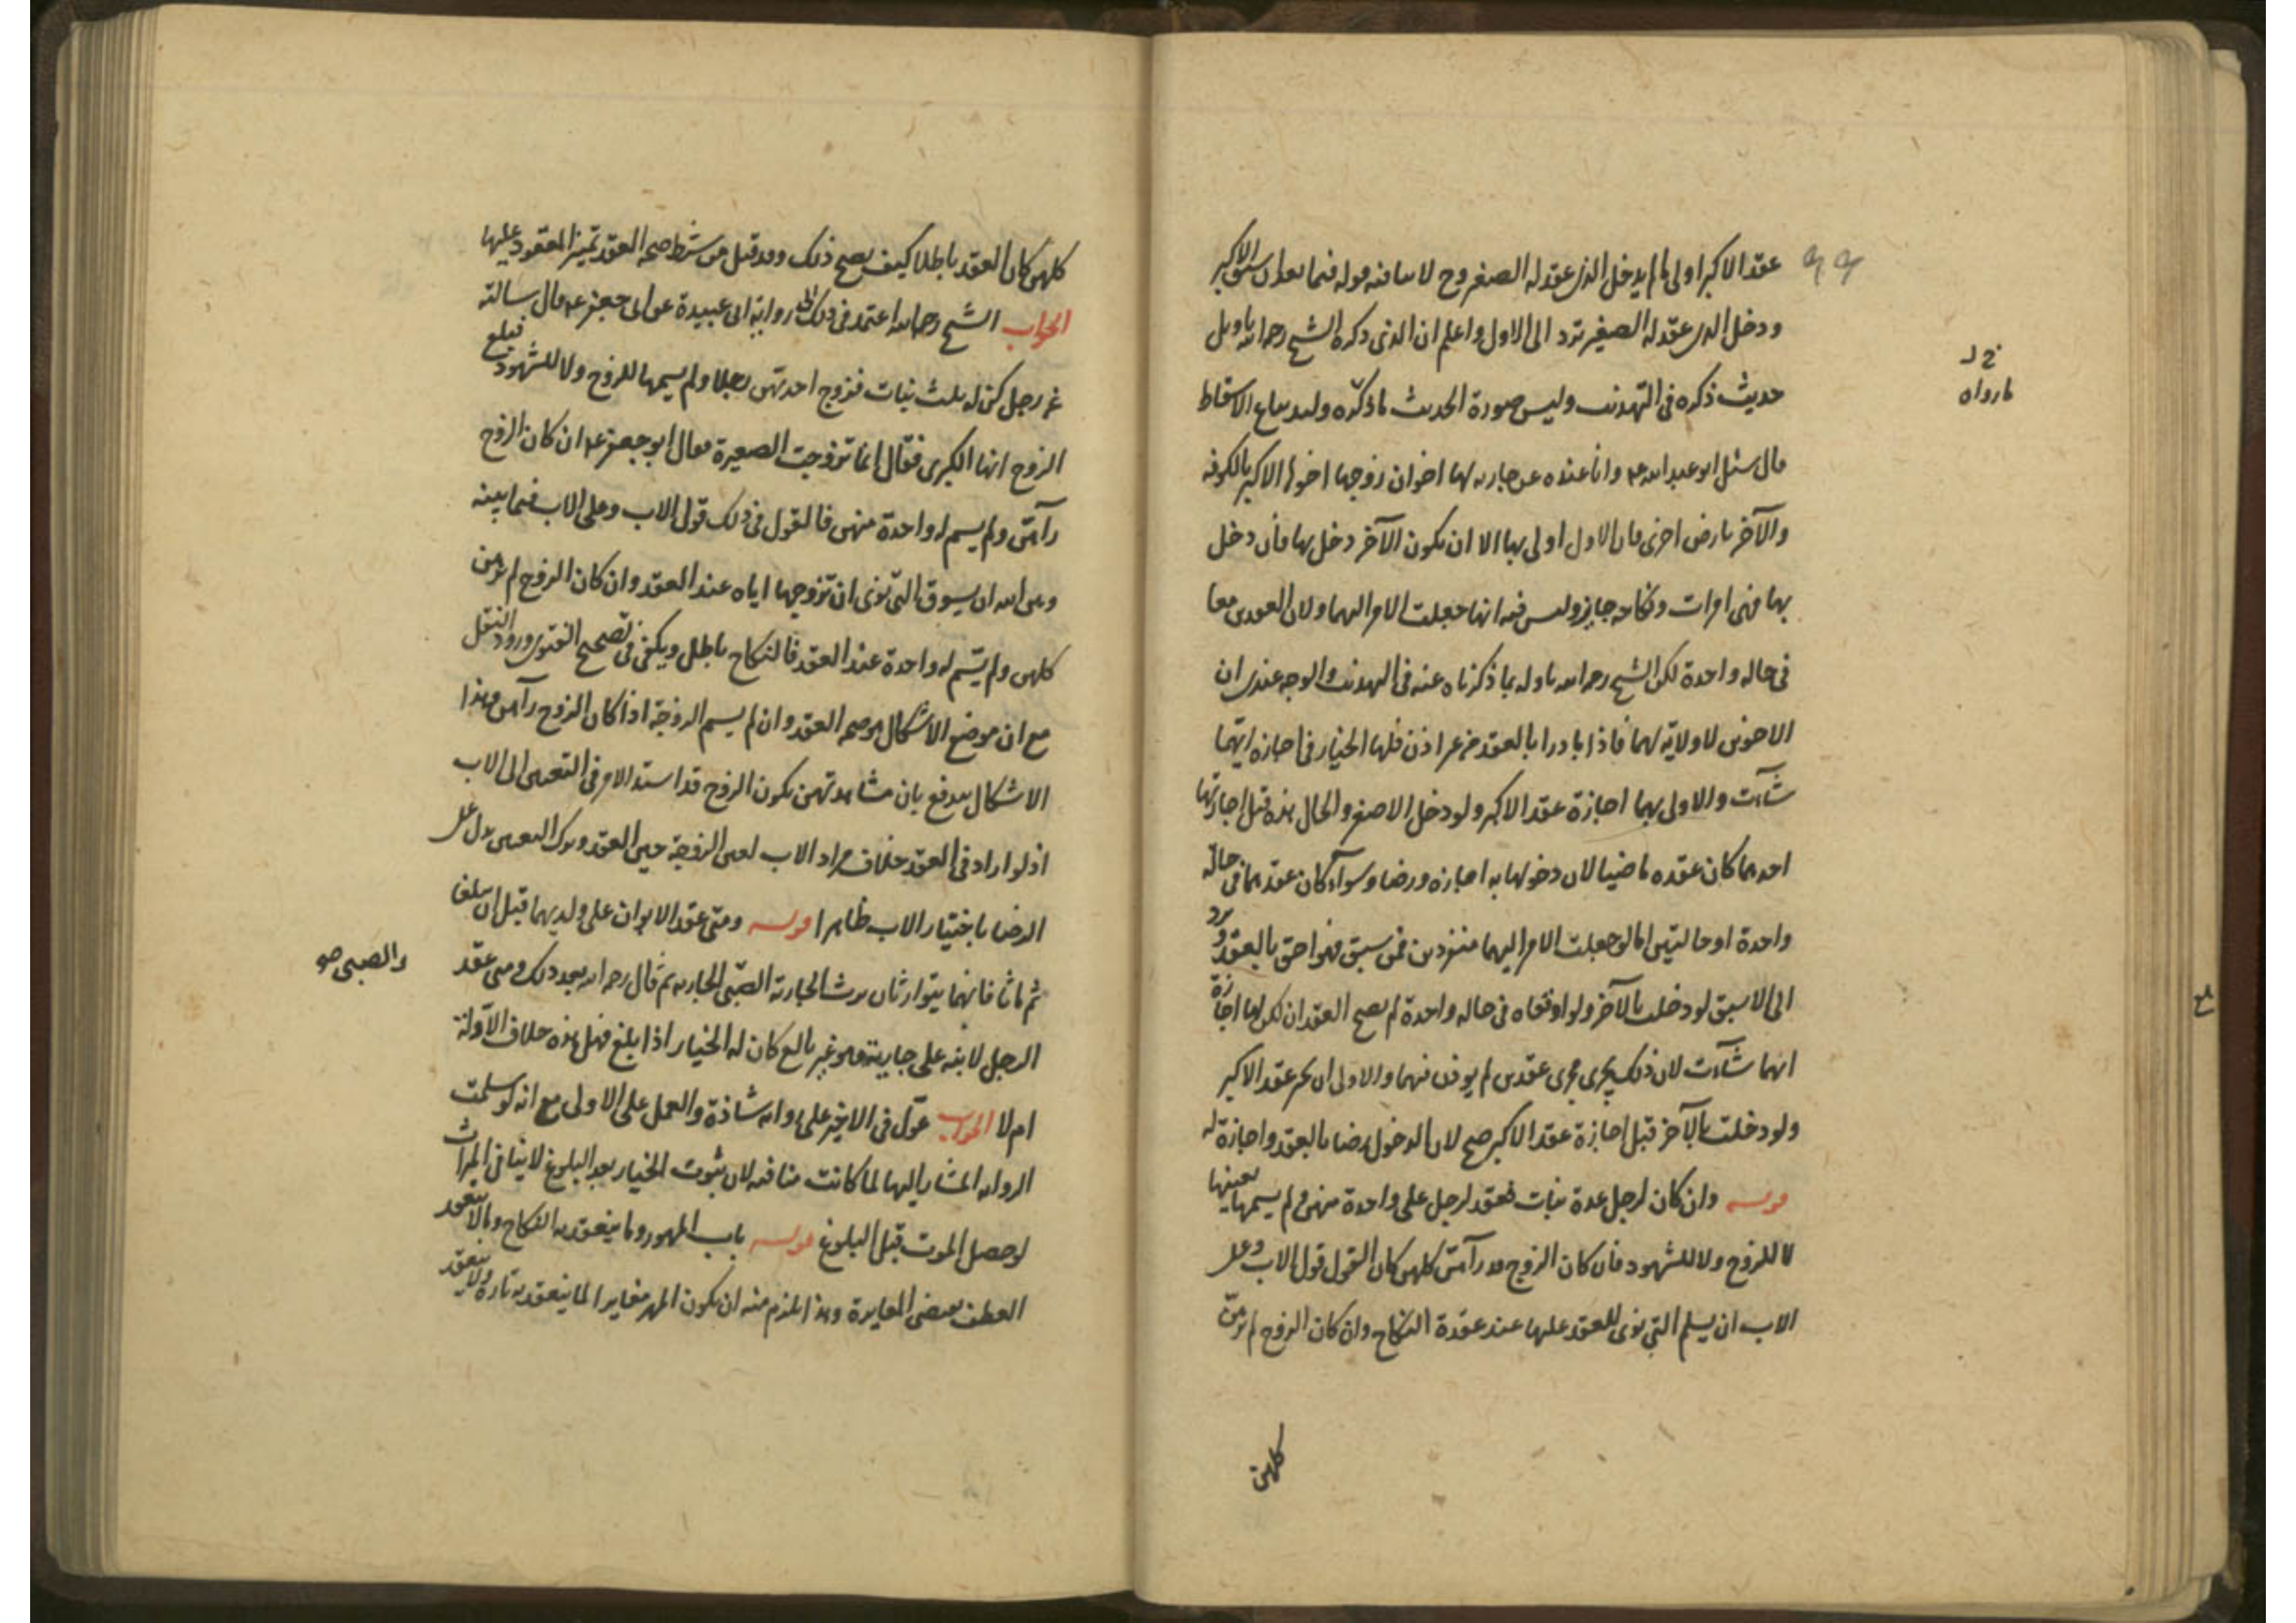 عقد الاكبر اولى ما لم يدخل الذى عقد له الصغير وح لا منافيه قوله فيما بعد ان سبق الاكبر
ودخل الذى عقد له الصغير ترد الى الاول واعلم ان الذى ذكره الشيخ رحمه الله تاويل
حديث ذكره فى التهذيب وليس صورة الحديث ما ذكره وليد بياع الاسقاط
خ د
ما رواه
قال سئل ابو عبد الله ع وانا عنده عن جارية لها اخوان زوجها اخوها الاكبر بالكوفه
والآخر بارض اخرى قال الاول اولى بها الا ان يكون الآخر دخل بها فان دخل
بها فهى امرات ونكاحه جايز وليس فيه انها جعلت الامر اليهما ولا ان العقدين معا
فى حاله واحدة لكن الشيخ رحمه الله تاوله بما ذكرناه عنه فى التهذيب والوجه عندى ان
الاخوين لا ولاية لهما فاذا بادرا بالعقد من غير اذن فلها الخيار فى اجازه ايهما
شآءت والاولى بهما اجازة عقد الاكبر ولو دخل الاصغر والحال هذه قبل اجازتها
احدهما كان عقده ماضيا لان دخولها به اجازه ورضا وسوآء كان عقدهما فى حالة
واحدة او حالتين اما لو جعلت الامر اليهما منفردين فمن سبق فهو احق بالعقد وترد
الى الاسبق لو دخلت بالآخر ولو اوقعاه فى حاله واحدة لم يصح العقدان لكن لها اجازة
ايهما شآءت لان ذلك يجرى مجرى عقدين لم يوذن فيهما والاولى ان تجيز عقد الاكبر
ولو دخلت بالآخر قبل اجازة عقد الاكبر صح لان الدخول رضا بالعقد واجازة له
قوله وان كان لرجل عدة بنات فعقد لرجل على واحدة منهن ولم يسمها بعينها
لا للزوج ولا للشهود فان كان الزوج قد رآهن كلهن كان القول قول الاب وعلى
الاب ان يسلم التى نوى للعقد عليها عند عقدة النكاح وان كان الزوج لم يرهن
كلهن
كلهن كان العقد باطلا كيف يصح ذلك وقد قيل من شرط صحه العقد تميز المعقود عليها
الجواب الشيخ رحمه الله اعتمد فى ذلك على رواية ابى عبيدة عن ابى جعفر ع قال سالته
عن رجل كن له ثلث بنات فزوج احدتهن رجلا ولم يسمها للزوج ولا للشهود فبلغ
الزوج انها الكبرى فقال انما تزوجت الصغيرة فقال ابو جعفر ع ان كان الزوج
رآهن ولم يسم له واحدة منهن فالقول فى ذلك قول الاب وعلى الاب فيما بينه
وبين الله ان يسوق التى نوى ان تزوجها اياه عند العقد وان كان الزوج لم يرهن
كلهن ولم يسم له واحدة عند العقد فالنكاح باطل ويكفى فى تصحيح الفتوى ورود النقل
مع ان موضع الاشكال هو صحه العقد وان لم يسم الزوجة اذا كان الزوج رآهن وهذا
الاشكال يندفع بان مشاهدتهن يكون الزوج قد اسند الامر فى التعيين الى الاب
اذ لو اراد فى العقد خلاف مراد الاب لعين الزوجة حين العقد وترك التعيين يدل على
الرضا باختيار الاب ظاهرا قوله ومتى عقد الابوان على ولديهما قبل ان يبلغا
ثم ماتا فانهما يتوارثان يرث الجارية الصبى الجاريه ثم قال رحمه الله بعد ذلك ومتى عقد
والصبى صو
الرجل لابنه على جارية وهو غير بالغ كان له الخيار اذا بلغ فهل هذه خلاف الاولة
ام لا الجواب عول فى الاخير على روايه شاذة والعمل على الاولى مع انه لو سلمت
الروايه المشار اليها لما كانت منافيه لان ثبوت الخيار بعد البلوغ لا ينافى الميراث
لو حصل الموت قبل البلوغ قوله باب المهور وما ينعقد به النكاح وما لا ينعقد
العطف يقتضى المغايرة وهذا يلزم منه ان يكون المهر مغايرا لما ينعقد به تارة ولا ينعقد